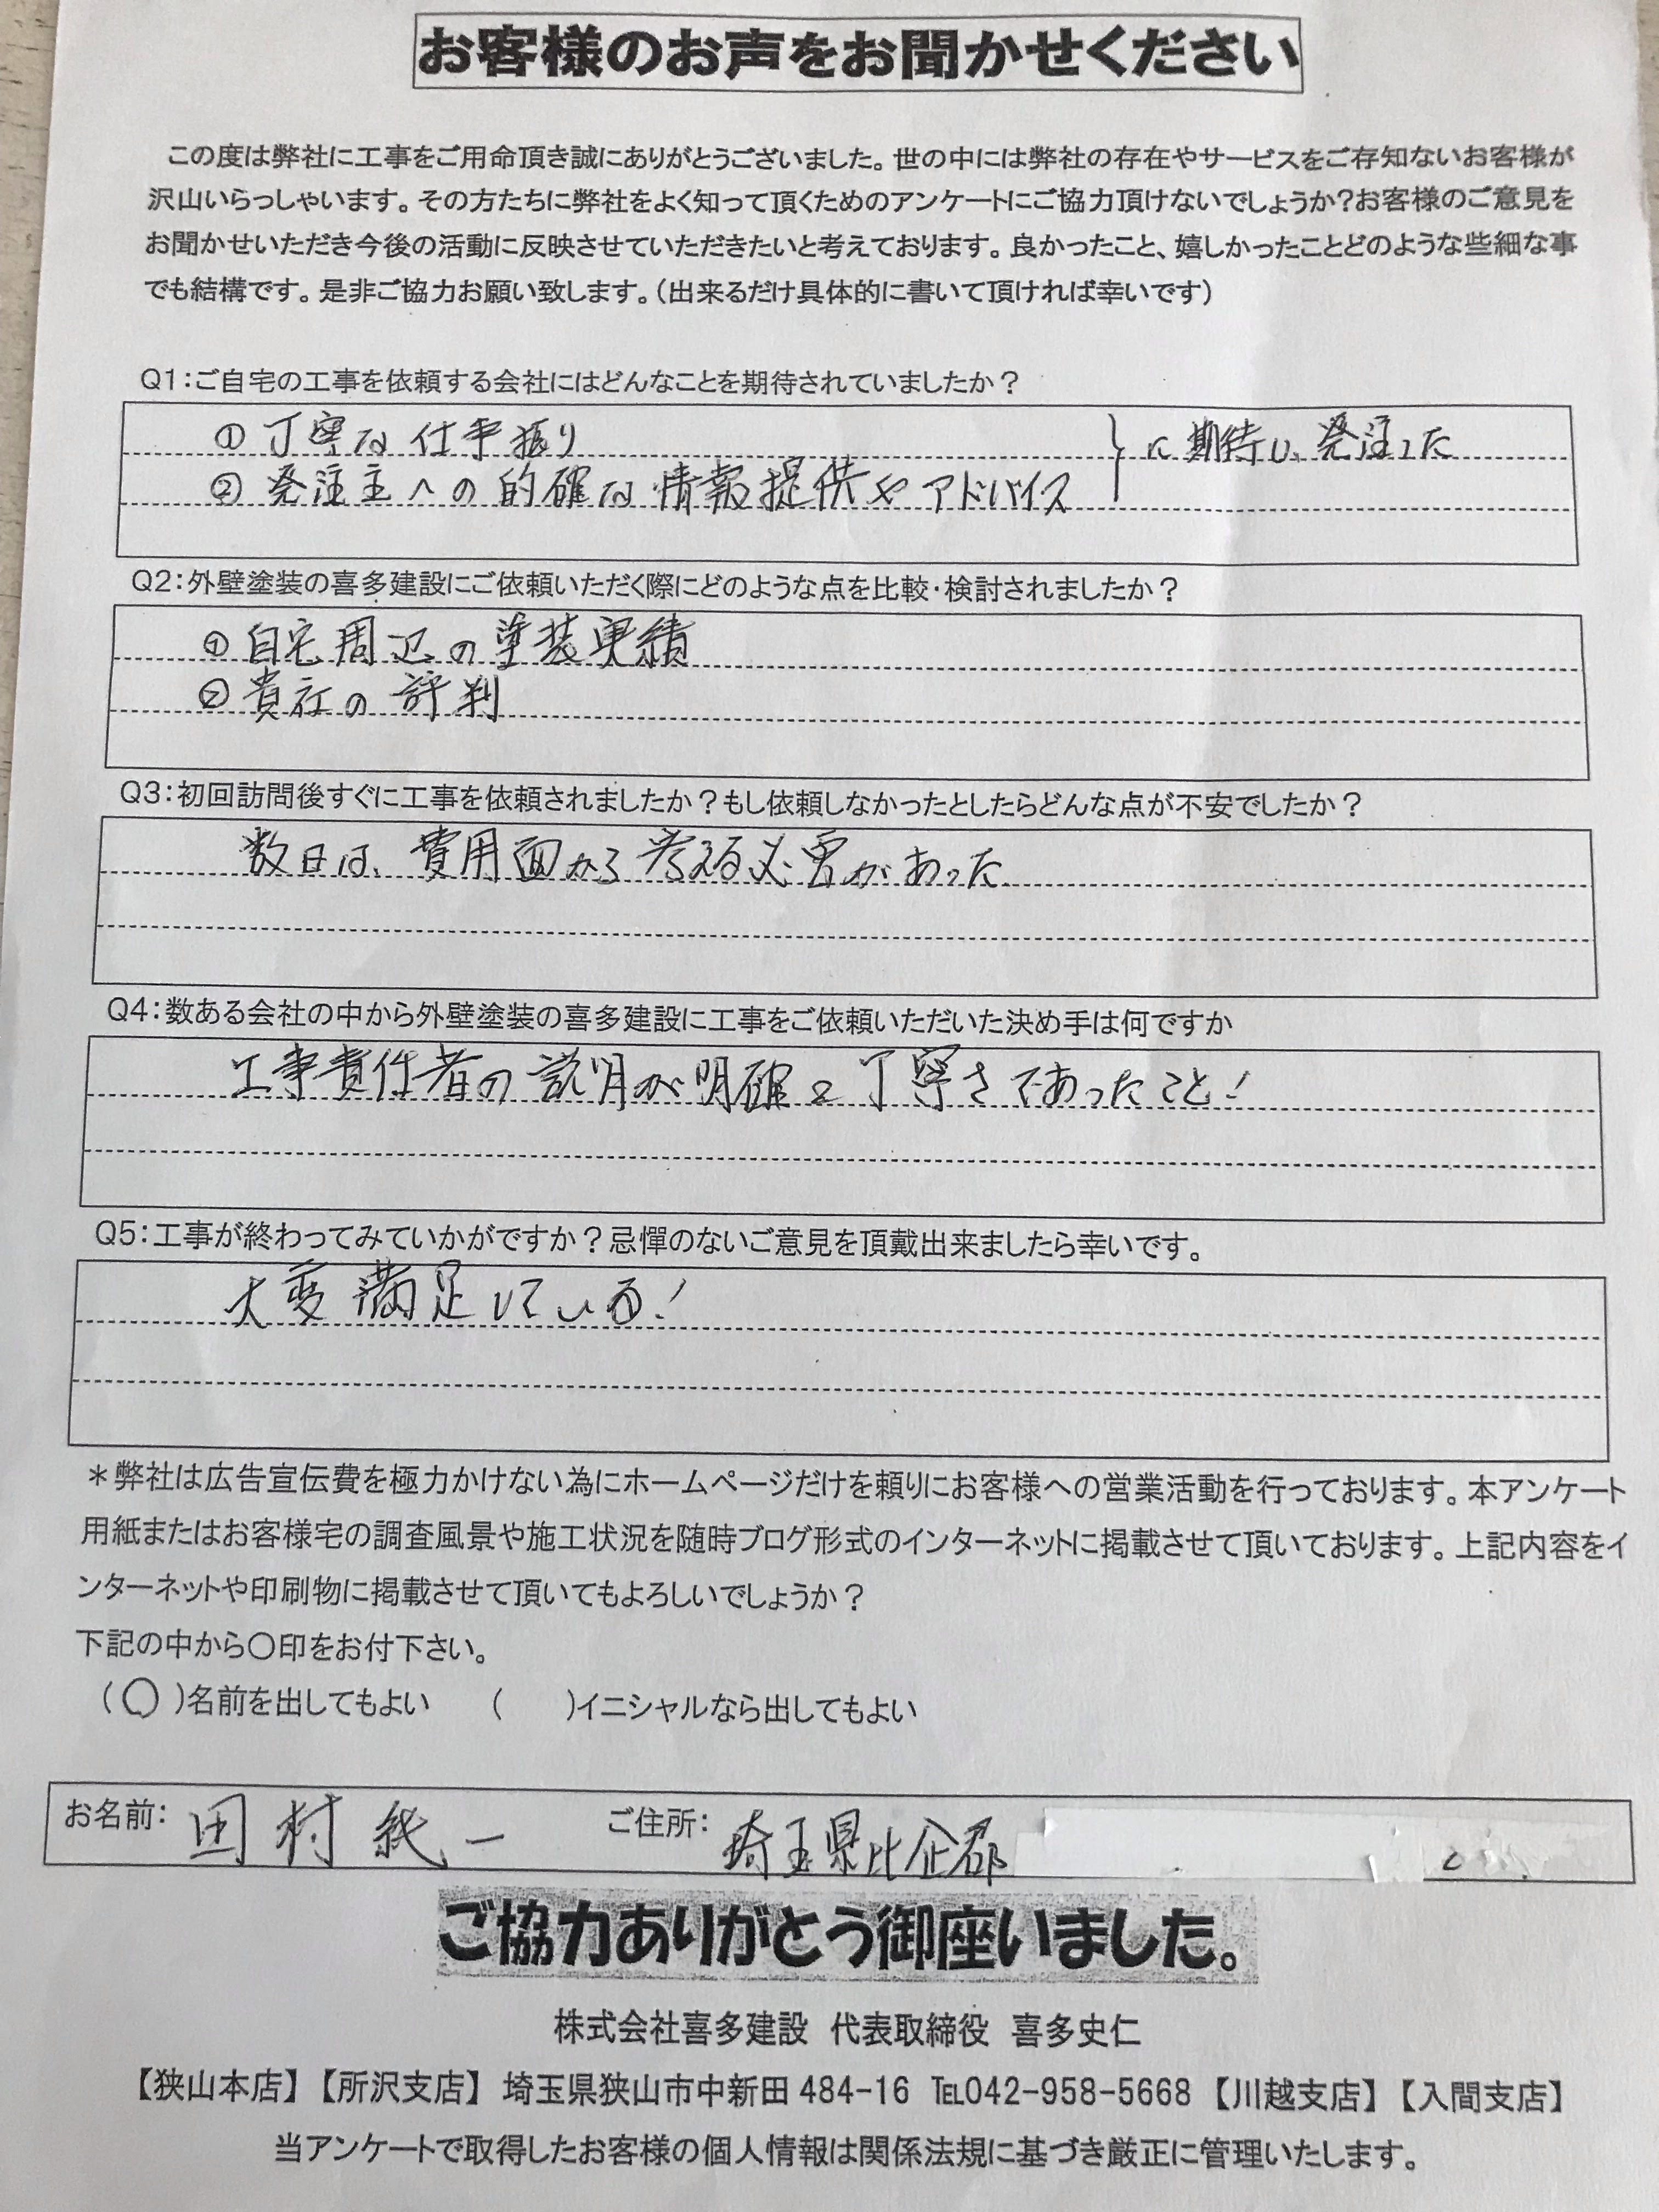 お客様のお声をお聞かせください
この度は弊社に工事をご用命頂き誠にありがとうございました。世の中には弊社の存在やサービスをご存知ないお客様が
沢山いらっしゃいます。その方たちに弊社をよく知って頂くためのアンケートにご協力頂けないでしょうか?お客様のご意見を
お聞かせいただき今後の活動に反映させていただきたいと考えております。良かったこと、嬉しかったことどのような些細な事
でも結構です。是非ご協力お願い致します。(出来るだけ具体的に書いて頂ければ幸いです)
Q1:ご自宅の工事を依頼する会社にはどんなことを期待されていましたか?
①丁寧な仕事振り
②発注主への的確な情報提供やアドバイス } に期待し、発注した
Q2:外壁塗装の喜多建設にご依頼いただく際にどのような点を比較・検討されましたか?
①自宅周辺の塗装実績
②貴社の評判
Q3:初回訪問後すぐに工事を依頼されましたか?もし依頼しなかったとしたらどんな点が不安でしたか?
数日は、費用面から考える必要があった
Q4:数ある会社の中から外壁塗装の喜多建設に工事をご依頼いただいた決め手は何ですか
工事責任者の説明が明確と丁寧さであったこと!
Q5:工事が終わってみていかがですか?忌憚のないご意見を頂戴出来ましたら幸いです。
大変満足している!
*弊社は広告宣伝費を極力かけない為にホームページだけを頼りにお客様への営業活動を行っております。本アンケート
用紙またはお客様宅の調査風景や施工状況を随時ブログ形式のインターネットに掲載させて頂いております。上記内容をイ
ンターネットや印刷物に掲載させて頂いてもよろしいでしょうか?
下記の中から〇印をお付下さい。
(〇)名前を出してもよい ( )イニシャルなら出してもよい
お名前: 田村純一 ご住所: 埼玉県比企郡
ご協力ありがとう御座いました。
株式会社喜多建設 代表取締役 喜多史仁
【狭山本店】【所沢支店】埼玉県狭山市中新田484-16 ℡042-958-5668【川越支店】【入間支店】
当アンケートで取得したお客様の個人情報は関係法規に基づき厳正に管理いたします。